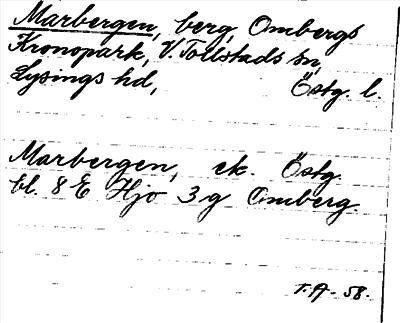 Marbergen, berg, Ombergs
Kronopark, V. Tollstads sn,
Lysings hd, Östg. l.
Marbergen, ek. Östg.
bl. 8 E Hjo 3 g Omberg.
T.A. 58.